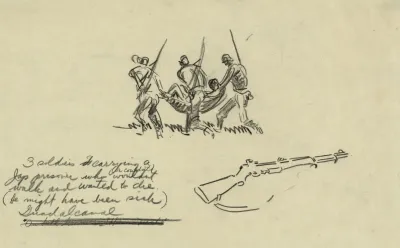 3 soldiers carrying a
Jap prisoner who wouldn't
walk and wanted to die
(he might have been sick)
Guadalcanal